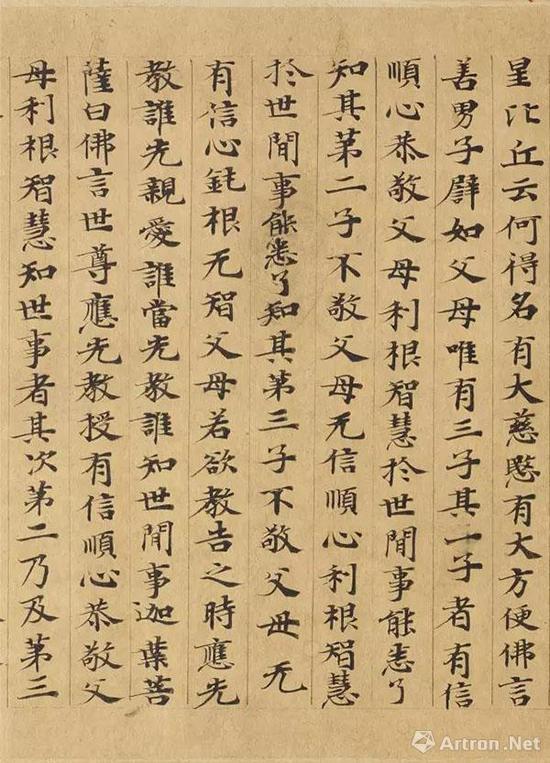 星比丘云何得名有大慈愍有大方便佛言
善男子譬如父母唯有三子其一子者有信
順心恭敬父母利根智慧於世間事能悉了
知其第二子不敬父母无信順心利根智慧
於世間事能悉了知其第三子不敬父母无
有信心鈍根无智父母若欲教告之時應先
教誰先親愛誰當先教誰知世間事迦葉菩
薩白佛言世尊應先教授有信順心恭敬父
母利根智慧知世事者其次第二乃及第三
Artron.Net